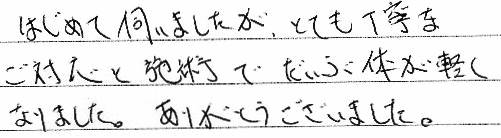 はじめて伺いましたが、とても丁寧な
ご対応と施術でだいぶ体が軽く
なりました。ありがとうございました。